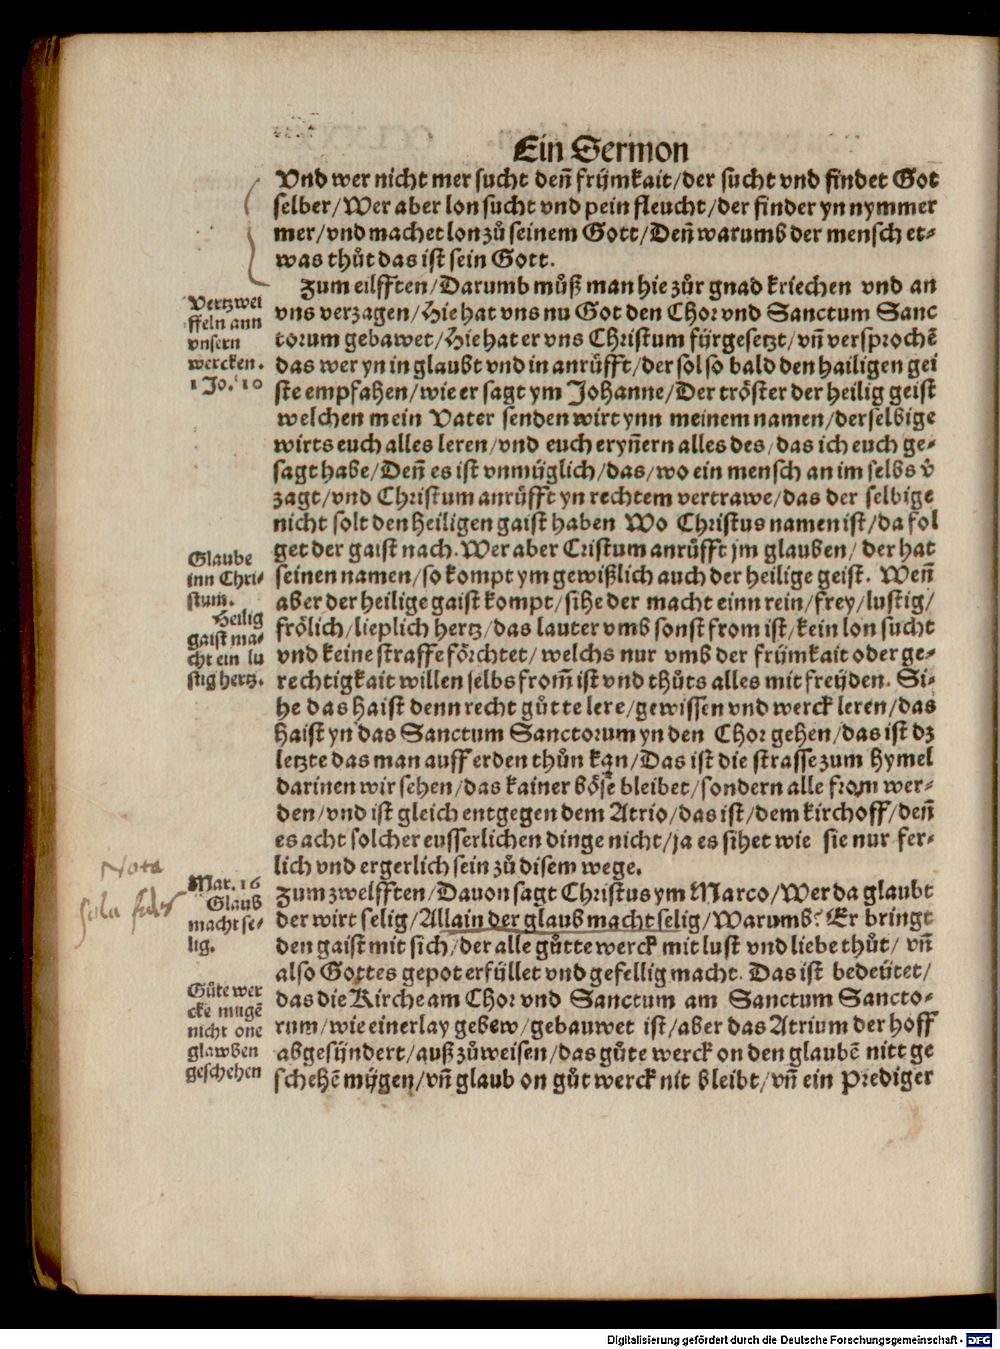 Ein Sermon
Vnd wer nicht mer sucht deñ frümkait/der sucht vnd findet Got
selber/Wer aber lon sucht vnd pein fleucht/der finder yn nymmer
mer/vnd machet lon zů seinem Gott/Deñ warumb der mensch et⸗
was thůt das ist sein Gott.
Vertzwei
ffeln ann
vnsern
wercken.
1 Jo. 10
Zum eilfften/Darumb můß man hie zůr gnad kriechen vnd an
vns verzagen/Hie hat vns nu Got den Chor vnd Sanctum Sanc
torum gebawet/Hie hat er vns Christum fürgesetzt/vñ versprochẽ
das wer yn in glaubt vnd in anrůfft/der sol so bald den hailigen gei
ste empfahen/wie er sagt ym Johanne/Der tröster der heilig geist
welchen mein Vater senden wirt ynn meinem namen/derselbige
wirts euch alles leren/vnd euch eryñern alles des/das ich euch ge⸗
sagt habe/Deñ es ist vnmüglich/das/wo ein mensch an im selbs v̓
zagt/vnd Christum anrůfft yn rechtem vertrawe/das der selbige
nicht solt den Heiligen gaist haben Wo Christus namen ist/da fol
get der gaist nach. Wer aber Cristum anrůfft jm glauben/ der hat
Glaube
inn Chri⸗
stum.
Heilig
gaist ma⸗
cht ein lu
stig hertz.
seinen namen/so kompt ym gewißlich auch der heilige geist. Weñ
aber der heilige gaist kompt/sihe der macht einn rein/frey/lustig/
frölich/lieplich hertz/das lauter vmb sonst from ist/kein lon sucht
vnd keine straffe förchtet/welchs nur vmb der frümkait oder ge⸗
rechtigkait willen selbs from̃ ist vnd thůts alles mit freüden. Si⸗
he das haist denn recht gůtte lere/gewissen vnd werck leren/das
haist yn das Sanctum Sanctorum yn den Chor gehen/das ist dz
letzte das man auff erden thůn kan/Das ist die strasse zum hymel
darinen wir sehen/das kainer böse bleibet/sondern alle from wer⸗
den/vnd ist gleich entgegen dem Atrio/das ist/dem kirchoff/deñ
es acht solcher eusserlichen dinge nicht/ja es sihet wie sie nur fer⸗
lich vnd ergerlich sein zů disem wege.
Nota
sola fides
Mar. 16
Glaub
macht se⸗
lig.
Zum zwelfften/Dauon sagt Christus ym Marco/Wer da glaubt
der wirt selig/Allain der glaub macht selig/Warumb? Er bringt
den gaist mit sich/der alle gůtte werck mit lust vnd liebe thůt/ vñ
also Gottes gepot erfüllet vnd gefellig macht. Das ist bedeütet/
Gůte wer
cke mugẽ
nicht one
glawben
geschehen
das die Kirche am Chor vnd Sanctum am Sanctum Sancto⸗
rum/wie einerlay gebew/gebauwet ist/aber das Atrium der hoff
abgesündert/auß zůweisen/das gůte werck on den glaubẽ nitt ge
schehẽ mügen/vñ glaub on gůt werck nit bleibt/vñ ein Prediger
Digitalisierung gefördert durch die Deutsche Forschungsgemeinschaft - DFG